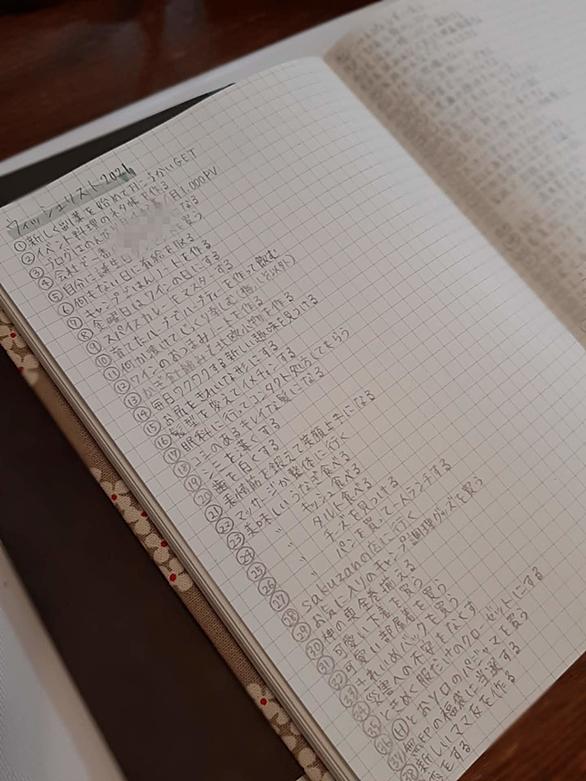 ウィッシュリスト2026
①新しく副業を始めて月こづかいGET
②イベント料理のネタ帳を作る
③ブログはのんびり 月1,000PV
④会社で一番 なる
⑤自分に誕生日 買う
⑥何もない日に有給を取る
⑦キャンプごはんノートを作る
⑧金曜日はワインの日にする
⑨スパイスカレーをマスターする
⑩育てたハーブでハーブティーを作って飲む
⑪何か漬けてじっくり楽しむ(梅仕事以外)
⑫ワインのおつまみノートを作る
⑬かぎ針編みで 小物を作る
⑭毎日ワクワクする新しい趣味を見つける
⑮お尻をきれいな形にする
⑯髪型を変えてイメチェンする
⑰眼科に行ってコンタクト処方してもらう
⑱ のあるキレイな髪になる
⑲シミを薄くする
⑳歯を白くする
㉑表情筋を鍛えて笑顔上手になる
㉒マッサージか整体に行く
㉓美味しいうなぎ食べる
㉔ 〃 キッシュ食べる
㉕ 〃 タルト食べる
㉖ 〃 チーズを見つける
㉗ 〃 パンを買って一人ランチする
㉘sakuzanの店に行く
㉙お気に入りのキャンプ調理グッズを買う
㉚ 安全を揃える
㉛可愛い下着を買う
㉜可愛い部屋着を買う
㉝きれいめバッグを買う
㉞災害への不安をなくす
㉟ときめく服だけのクローゼットにする
㊱ とおソロのパジャマを買う
㊲無印の福袋に当選する
㊳新しいママ友を作る
をする